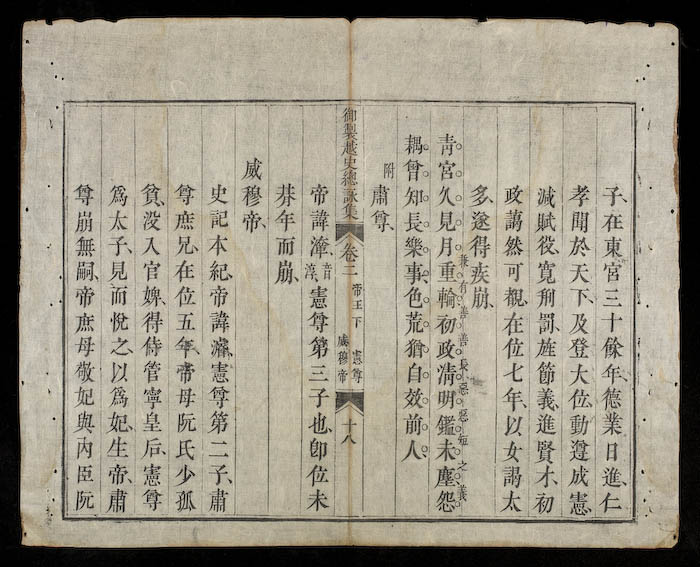 子、在東宮三十餘年、德業日進、仁
孝聞於天下、及登大位、動遵成憲、
減賦役、寬刑罰、旌節義、進賢才、初
政藹然可觀、在位七年、以女謁太
多、遂得疾崩、
青宮久見月重輪初政淸明鑑未塵怨
兼有善善長惡惡短之義
耦曾知長樂事色荒猶自效前人
附 肅尊
御製越史總詠集 卷二 帝王下 憲尊 威穆帝 十八
帝諱 音淳 憲尊第三子也、卽位未
朞年而崩、
威穆帝、
史記本紀、帝諱濬、憲尊第二子、肅
尊庶兄、在位五年、帝母阮氏少孤
貧、沒入官婢、得侍管寧皇后、憲尊
爲太子、見而悅之、以爲妃、生帝、肅
尊崩無嗣、帝庶母敬妃與內臣阮